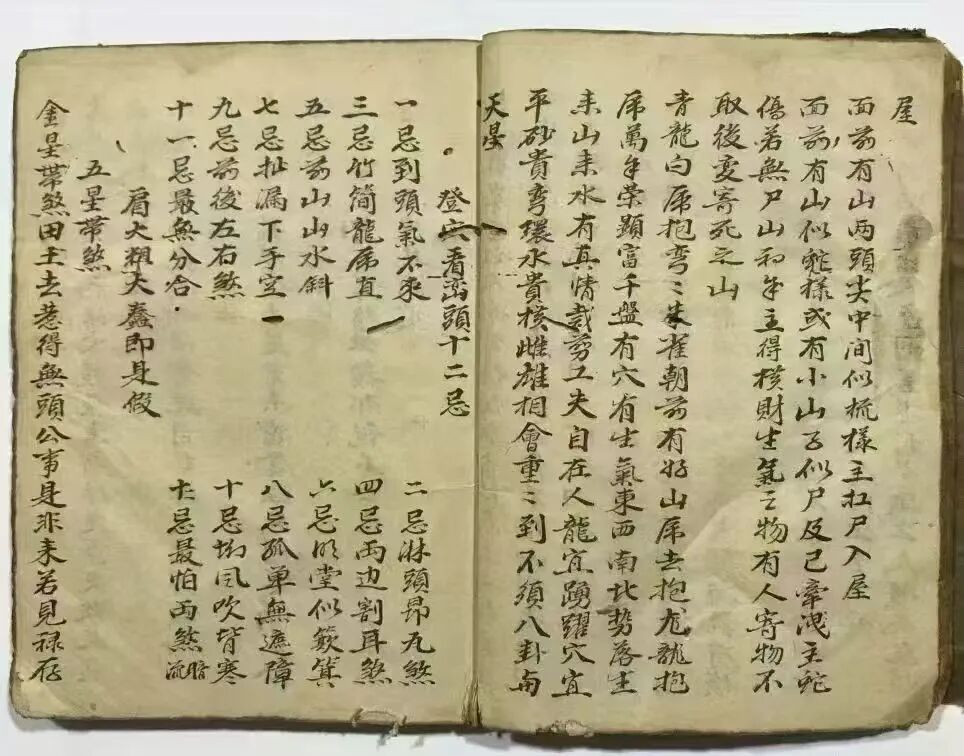 屋
面前有山两頭尖中间似梳樣主扛尸入屋
面前有山似蛇樣或有小山子似尸及己牽洩主蛇
傷若無尸山初年主得横財生氣之物有人寄物不
取後变寄死之山
青龍白虎抱弯〻朱雀朝前有好山虎去抱龙龍抱
虎萬年荣顕富千盤有穴有生氣東西南北势落主
来山来水有真情裁剪工夫自在人龍宜踴躍穴宜
平砂貴弯環水貴横雌雄相會重〻到不須八卦南
天星
登穴看峦頭十二忌
一忌到頭氣不乘
二忌淋頭昂丸煞
三忌竹简龍虎直
四忌两边割耳煞
五忌前山山水斜
六忌明堂似簸箕
七忌扯漏下手空
八忌孤单無遮障
九忌前後左右煞
十忌坳风吹背寒
十一忌最無分合
十二忌最怕两煞暗流
眉大粗大蠢即身假
五星带煞
金星带煞田土去惹得無頭公事是非来若見禄存